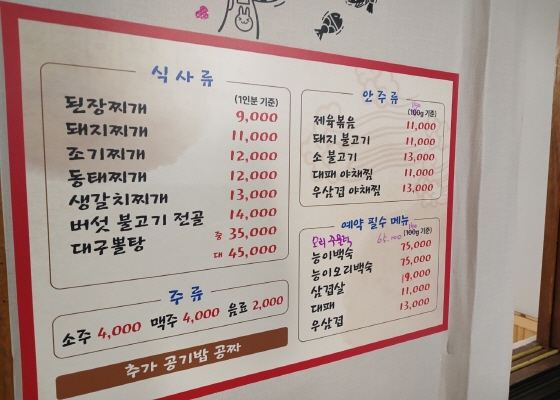 식사류
(1인분 기준)
된장찌개 9,000
돼지찌개 11,000
조기찌개 12,000
동태찌개 12,000
생갈치찌개 13,000
버섯 불고기 전골 14,000
대구뽈탕 중 35,000
대 45,000
주류
소주 4,000 맥주 4,000 음료 2,000
추가 공기밥 공짜
안주류
(100g 기준)
제육볶음 11,000
돼지 불고기 11,000
소 불고기 13,000
대패 야채찜 11,000
우삼겹 야채찜 13,000
예약 필수 메뉴
(100g 기준)
오리 주물럭 65,000
능이백숙 75,000
능이오리백숙 75,000
삼겹살 19,000
대패 11,000
우삼겹 13,000